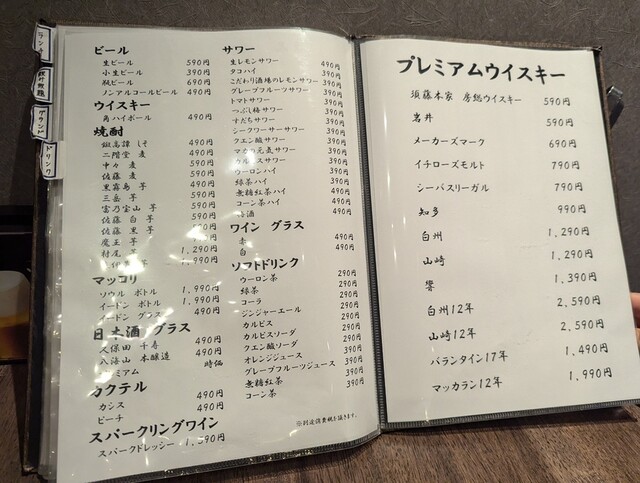 ランチ
飲み放題
グランド
ドリンク
ビール
生ビール 590円
小生ビール 390円
瓶ビール 690円
ノンアルコールビール 490円
ウイスキー
角ハイボール 490円
焼酎
鍛高譚 しそ 490円
二階堂 麦 490円
中々 麦 590円
佐藤 麦 590円
黒霧島 芋 490円
三岳 芋 590円
富乃宝山 芋 590円
佐藤 白 芋 590円
佐藤 黒 芋
魔王 芋
村尾 芋 1,290円
1,990円
マッコリ
ソウル ボトル 1,990円
イードン ボトル 1,990円
イードン グラス 490円
日本酒 グラス
久保田 千寿 490円
八海山 本醸造 490円
時価
カクテル
カシス 490円
ピーチ 490円
スパークリングワイン
スパークドレッシー 1,390円
サワー
生レモンサワー 490円
タコハイ 390円
こだわり酒場のレモンサワー 390円
グレープフルーツサワー 390円
トマトサワー 390円
つぶし梅サワー 390円
すだちサワー 390円
シークワーサーサワー 390円
クエン酸サワー 390円
マカの元気サワー 490円
カルピスサワー 390円
ウーロンハイ 390円
緑茶ハイ 390円
無糖紅茶ハイ 390円
コーン茶ハイ 390円
490円
ワイン グラス
赤 490円
白 490円
ソフトドリンク
ウーロン茶 290円
緑茶 290円
コーラ 290円
ジンジャーエール 290円
カルピス 290円
カルピスソーダ 290円
クエン酸ソーダ 290円
オレンジジュース 390円
グレープフルーツジュース 390円
無糖紅茶 390円
コーン茶 390円
プレミアムウイスキー
須藤本家 房総ウイスキー 590円
岩井 590円
メーカーズマーク 690円
イチローズモルト 790円
シーバスリーガル 790円
知多 990円
白州 1,290円
山崎 1,290円
響 1,390円
白州12年 2,590円
山崎12年 2,590円
バランタイン17年 1,490円
マッカラン12年 1,990円